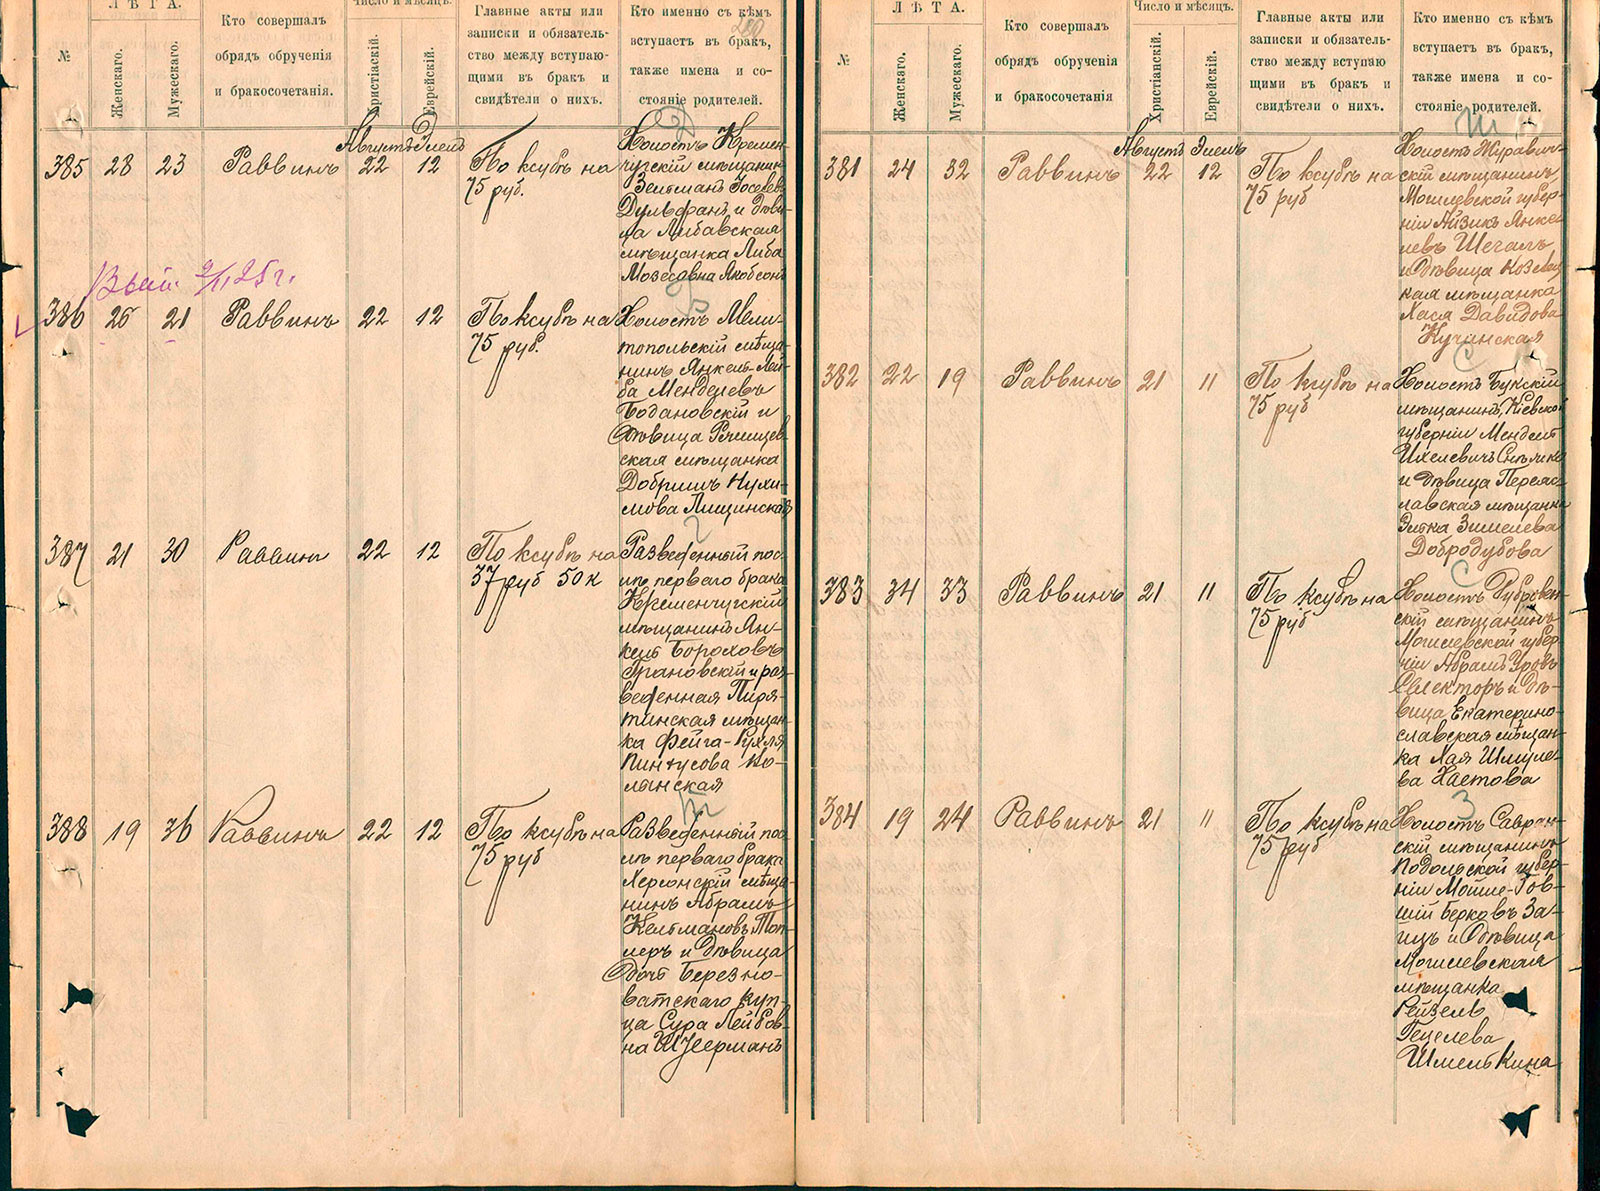 ЛѢТА.
Число и мѣсяцъ.
№
Женскаго.
Мужескаго.
Кто совершалъ
обрядъ обрученія
и бракосочетанія.
Христіаскій.
Еврейскій.
Главные акты или
записки и обязатель-
ство между вступаю-
щими въ бракъ и
свидѣтели о нихъ.
Кто именно съ кѣмъ
вступаетъ въ бракъ,
также имена и со-
стояніе родителей.
Августъ Элелъ
385 28 23 Раввинъ 22 12 По ксубѣ на
75 руб.
Холостъ Кремен-
чугскій мѣщанинъ
Зелтманъ Іосевев
Дульфанъ и дѣви-
ца Либавская
мѣщанка Либа
Мозесовна Якобсонъ
2/II 25 г.
386 26 21 Раввинъ 22 12 По ксубѣ на
75 руб.
Холостъ Мели-
топольскій мѣща-
нинъ Янкель-Лей-
ба Менделевъ
Бодановскій и
дѣвица Речицев-
ская мѣщанка
Добришъ Нухи-
мова Лищинская
387 21 30 Раввинъ 22 12 По ксубѣ на
37 руб 50 к
Разведенный пос-
лѣ перваго брака
Кременчугскій
мѣщанинъ Ян-
кель Бороховъ
Грановскій и раз-
веденная Пиря-
тинская мѣщан-
ка Фейга-Рухля
Пинтусова Ко-
лынская
388 19 36 Раввинъ 22 12 По ксубѣ на
75 руб
Разведенный пос-
лѣ перваго брака
Херсонскій мѣща-
нинъ Абрамъ
Келтмановъ Топ-
леръ и дѣвица
дочь Березно-
ватскаго куп-
ца Сура Лейбов-
на Шуерманъ
ЛѢТА.
Число и мѣсяцъ.
№
Женскаго.
Мужескаго.
Кто совершалъ
обрядъ обрученія
и бракосочетанія
Христіанскій.
Еврейскій.
Главные акты или
записки и обязатель-
ство между вступаю
щими въ бракъ и
свидѣтели о нихъ.
Кто именно съ кѣмъ
вступаетъ въ бракъ,
также имена и со-
стояніе родителей.
Августъ Элелъ
381 24 32 Раввинъ 22 12 По ксубѣ на
75 руб
Холостъ Журавич-
скій мѣщанинъ,
Могилевской губер-
ніи Айзикъ Янке-
левъ Шегалъ
и дѣвица Козелец-
кая мѣщанка
Хася Давидова
Кучинская
382 22 19 Раввинъ 21 11 По ксубѣ на
75 руб
Холостъ Букскій
мѣщанинъ, Кіевской
губерніи Мендель
Ихелевичъ
и дѣвица Переяс-
лавская мѣщанка
Элька Зимелева
Добродубова
383 34 33 Раввинъ 21 11 По ксубѣ на
75 руб
Холостъ Дубровен-
скій мѣщанинъ
Могилевской губер-
ніи Абрамъ Уровъ
Селекторъ и дѣ-
вица Екатерино-
славская мѣщан-
ка Лая Шмуле-
ва Хаетова
384 19 24 Раввинъ 21 11 По ксубѣ на
75 руб
Холостъ Савран-
скій мѣщанинъ
Подольской губер-
ніи Мойше-Гов-
шій Берковъ За-
ицъ и дѣвица
Могилевская
мѣщанка
Рейзель
Гецелева
Шмелькина